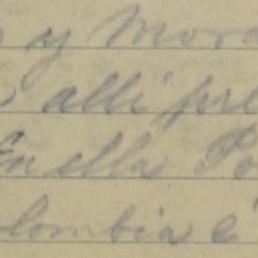 y Mora
alli pre
En ella Po
lombia é